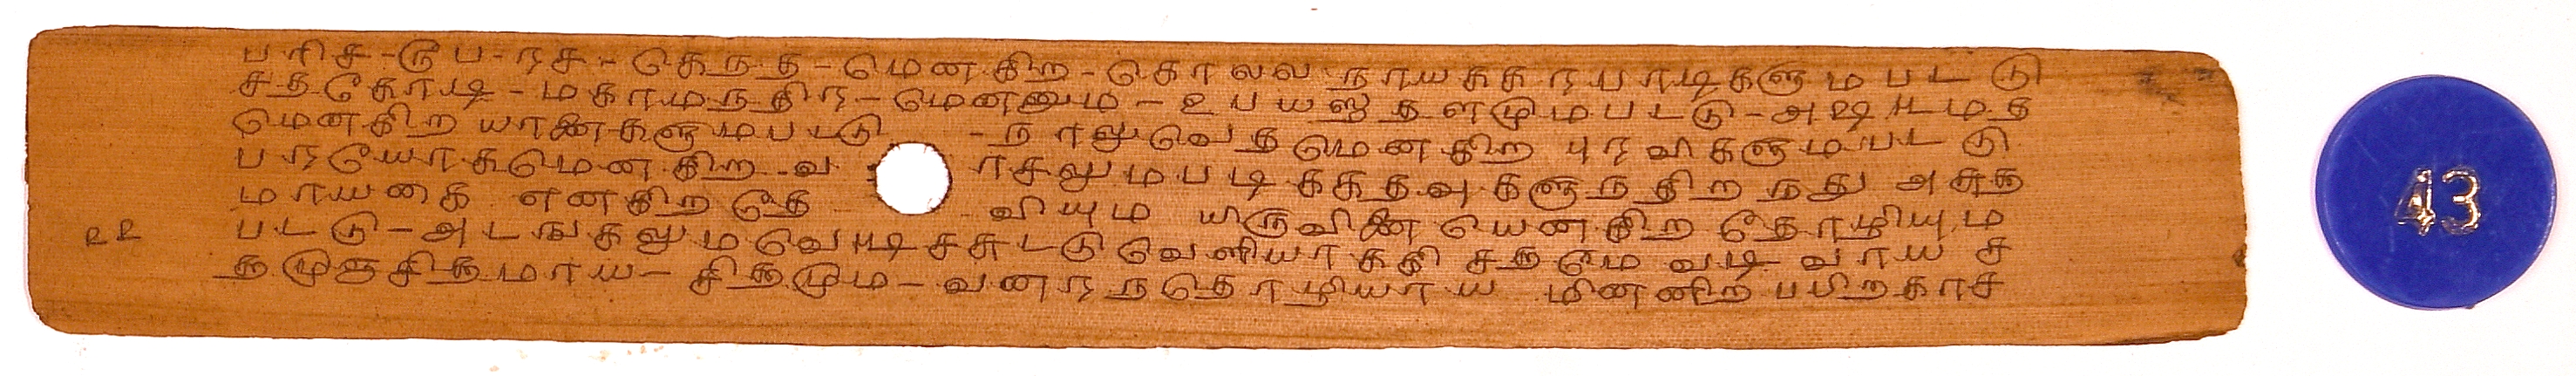 பரிச-ரூப-ரச-கெந்த-மென்கிற-கொல்ல நாயக்கர்பாடிகளும்பட்டு
சத்தகோடி-மகாமந்திர-மென்னும்-உபய தளமும்பட்டு-அஷ்டமத
மென்கிற யானைகளும்பட்டு -நாலுவெதமென்கிற புரவிகளும்பட்டு
பரயோகமென்கிற வ ாசலும்படிக்கதவுகளுந்திறந்து அசுத்த
மாயகை என்கிற தே வியும் யிருவினையென்கிற தோழியும்
உஉ பட்டு-அடங்கலும்வெடிச்சுட்டுவெளியாக்கி சத்தமே வடிவாய் ச
த்முஞ்சித்தமாய்-சித்தமும்-வனாந்தொழியாய் மின்னிற்பபிறகாச
43